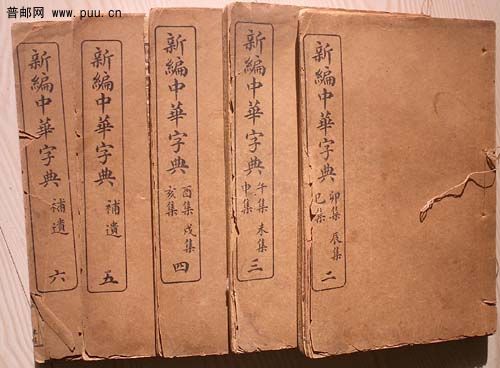 普邮网
www.puu.cn
新編中華字典
卯集 辰集
巳集
二
新編中華字典
午集 未集
申集
三
新編中華字典
酉集 戌集
亥集
四
新編中華字典
補遺
五
新編中華字典
補遺
六